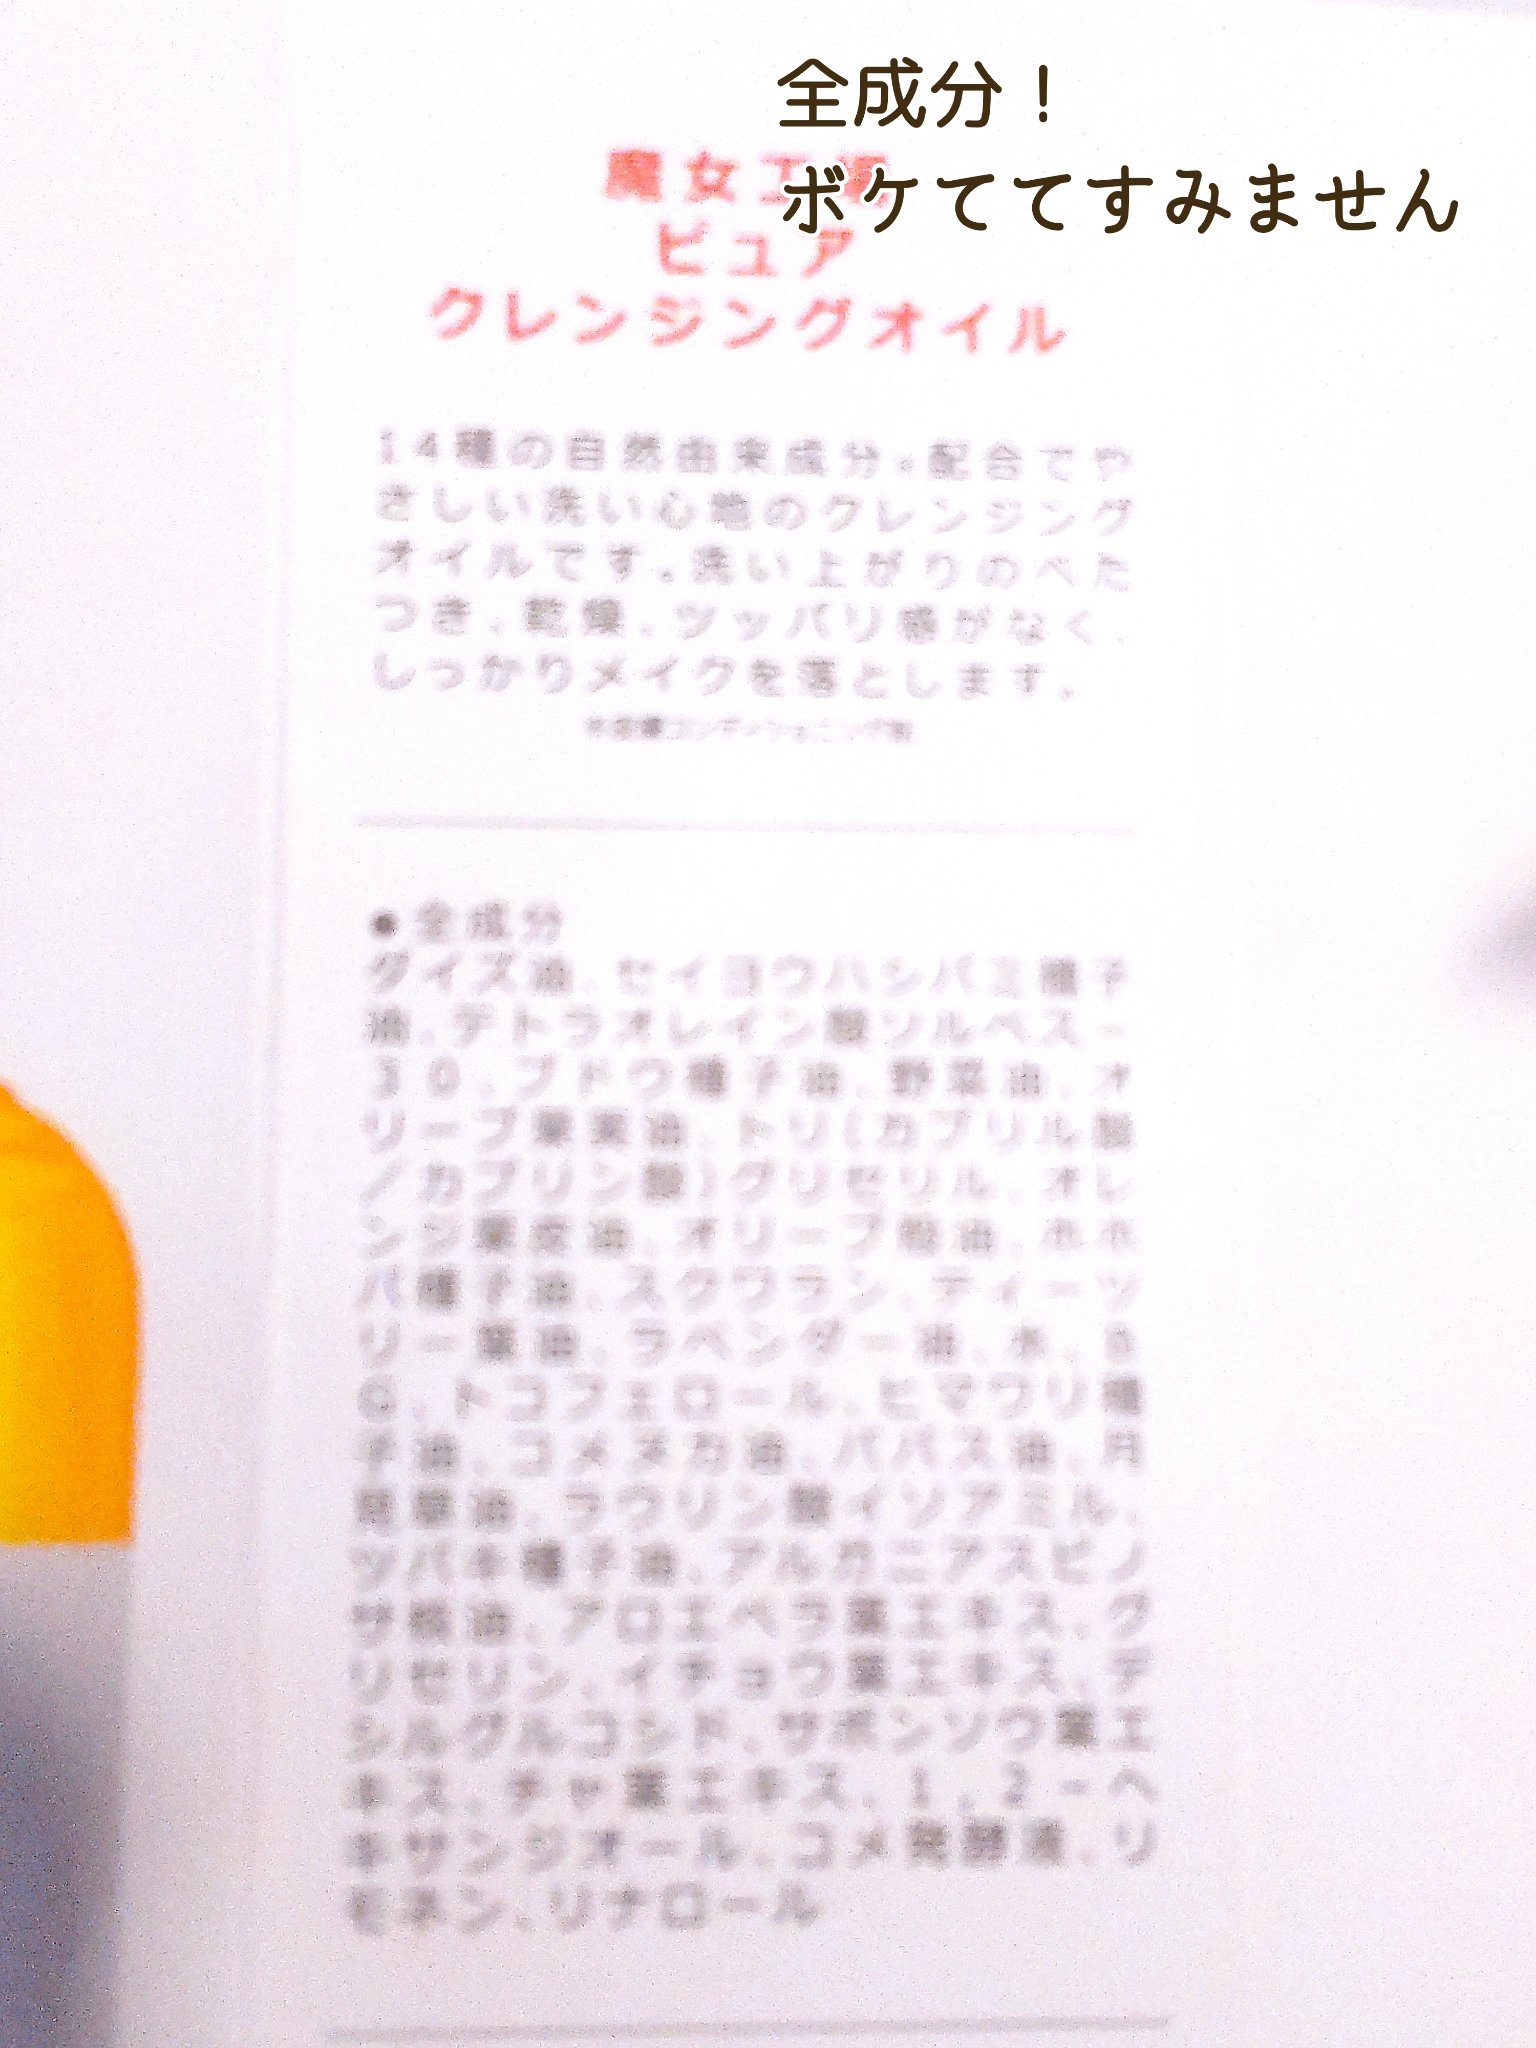 全成分！
ボケててすみません
魔女工場
ピュア
クレンジングオイル
14種の自然由来成分*配合でや
さしい洗い心地のクレンジング
オイルです。洗い上がりのべた
つき、乾燥、ツッパリ感がなく、
しっかりメイクを落とします。
コンディショニング
●全成分
ダイズ油、セイヨウハシバミ種子
油、テトラオレイン酸ソルベス-
30、ブドウ種子油、野菜油、オ
リーブ果実油、トリ(カプリル酸
/カプリン酸)グリセリル、オレ
ンジ果皮油、オリーブ 油、ホホ
バ種子油、スクワラン、ティーツ
リー葉油、ラベンダー油、水、B
G、トコフェロール、ヒマワリ種
子油、コメヌカ油、ババス油、月
見草油、ラウリン酸イソアミル、
ツバキ種子油、アルガニアスピノ
サ核油、アロエベラ葉エキス、グ
リセリン、イチョウ葉エキス、デ
シルグルコシド、サボンソウ葉エ
キス、チャ葉エキス、1,2-ヘ
キサンジオール、コメ発酵液、リ
モネン、リナロール